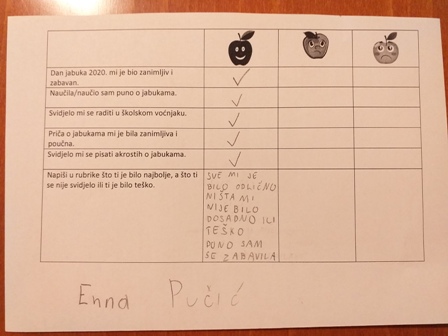 Dan jabuka 2020. mi je bio zanimljiv i
zabavan.
Naučila/naučio sam puno o jabukama.
Svidjelo mi se raditi u školskom voćnjaku.
Priča o jabukama mi je bila zanimljiva i
poučna.
Svidjelo mi se pisati akrostih o jabukama.
Napiši u rubrike što ti je bilo najbolje, a što ti
se nije svidjelo ili ti je bilo teško.
SVE MI JE
BILO ODLIČNO
NIŠTA MI
NIJE BILO
DOSADNO ILI
TEŠKO
PUNO SAM
SE ZABAVILA
Enna Pučić